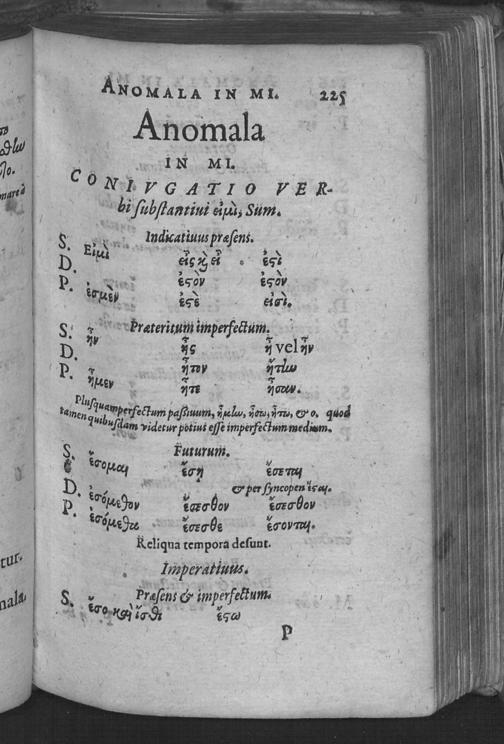 ANOMALA IN MI. 225
Anomala
IN MI.
CONIVGATIO VER-
bi substantiui εἰμὶ, Sum.
Indicatiuus præsens.
S. Εἰμὶ εἰς καὶ εἶ ἐστὶ
D. ἐστὸν ἐστὸν
P. ἐσμὲν ἐστὲ εἰσὶ.
Præteritum imperfectum.
S. ἦν ἦς ἦ vel ἦν
D. ἦτον ἤτην
P. ἦμεν ἦτε ἦσαν.
Plusquamperfectum passiuum, ἤμην, ἦσο, ἦτο, &c. quod
tamen quibusdam videtur potius esse imperfectum medium.
Futurum.
S. ἔσομαι ἔσῃ ἔσεται
& per syncopen ἔσται.
D. ἐσόμεθον ἔσεσθον ἔσεσθον
P. ἐσόμεθα ἔσεσθε ἔσονται.
Reliqua tempora desunt.
Imperatiuus.
Præsens & imperfectum.
S. ἔσο καὶ ἴσθι ἔστω
P
tur.
mala,